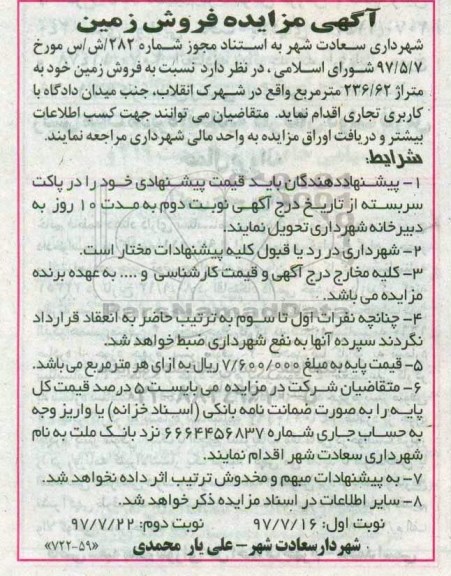 آگهی مزایده فروش زمین
شهرداری سعادت شهر به استناد مجوز شماره ۲۸۲/ش/س مورخ
۹۷/۵/۷ شورای اسلامی، در نظر دارد نسبت به فروش زمین خود به
متراژ ۲۳۶/۶۲ مترمربع واقع در شهرک انقلاب، جنب میدان دادگاه با
کاربری تجاری اقدام نماید. متقاضیان می توانند جهت کسب اطلاعات
بیشتر و دریافت اوراق مزایده به واحد مالی شهرداری مراجعه نمایند.
شرایط:
۱- پیشنهاددهندگان باید قیمت پیشنهادی خود را در پاکت
سربسته از تاریخ درج آگهی نوبت دوم به مدت ۱۰ روز به
دبیرخانه شهرداری تحویل نمایند.
۲- شهرداری در رد یا قبول کلیه پیشنهادات مختار است.
۳- کلیه مخارج درج آگهی و قیمت کارشناسی و .... به عهده برنده
مزایده می باشد.
۴- چنانچه نفرات اول تا سوم به ترتیب حاضر به انعقاد قرارداد
نگردند سپرده آنها به نفع شهرداری ضبط خواهد شد.
۵- قیمت پایه به مبلغ ۷/۶۰۰/۰۰۰ ریال به ازای هر مترمربع می باشد.
۶- متقاضیان شرکت در مزایده می بایست ۵ درصد قیمت کل
پایه را به صورت ضمانت نامه بانکی (اسناد خزانه) یا واریز وجه
به حساب جاری شماره ۶۶۶۴۴۵۶۸۳۷ نزد بانک ملت به نام
شهرداری سعادت شهر اقدام نمایند.
۷- به پیشنهادات مبهم و مخدوش ترتیب اثر داده نخواهد شد.
۸- سایر اطلاعات در اسناد مزایده ذکر خواهد شد.
نوبت اول: ۹۷/۷/۱۶ نوبت دوم: ۹۷/۷/۲۲
شهردار سعادت شهر - علی یار محمدی «۷۲۲-۵۹»